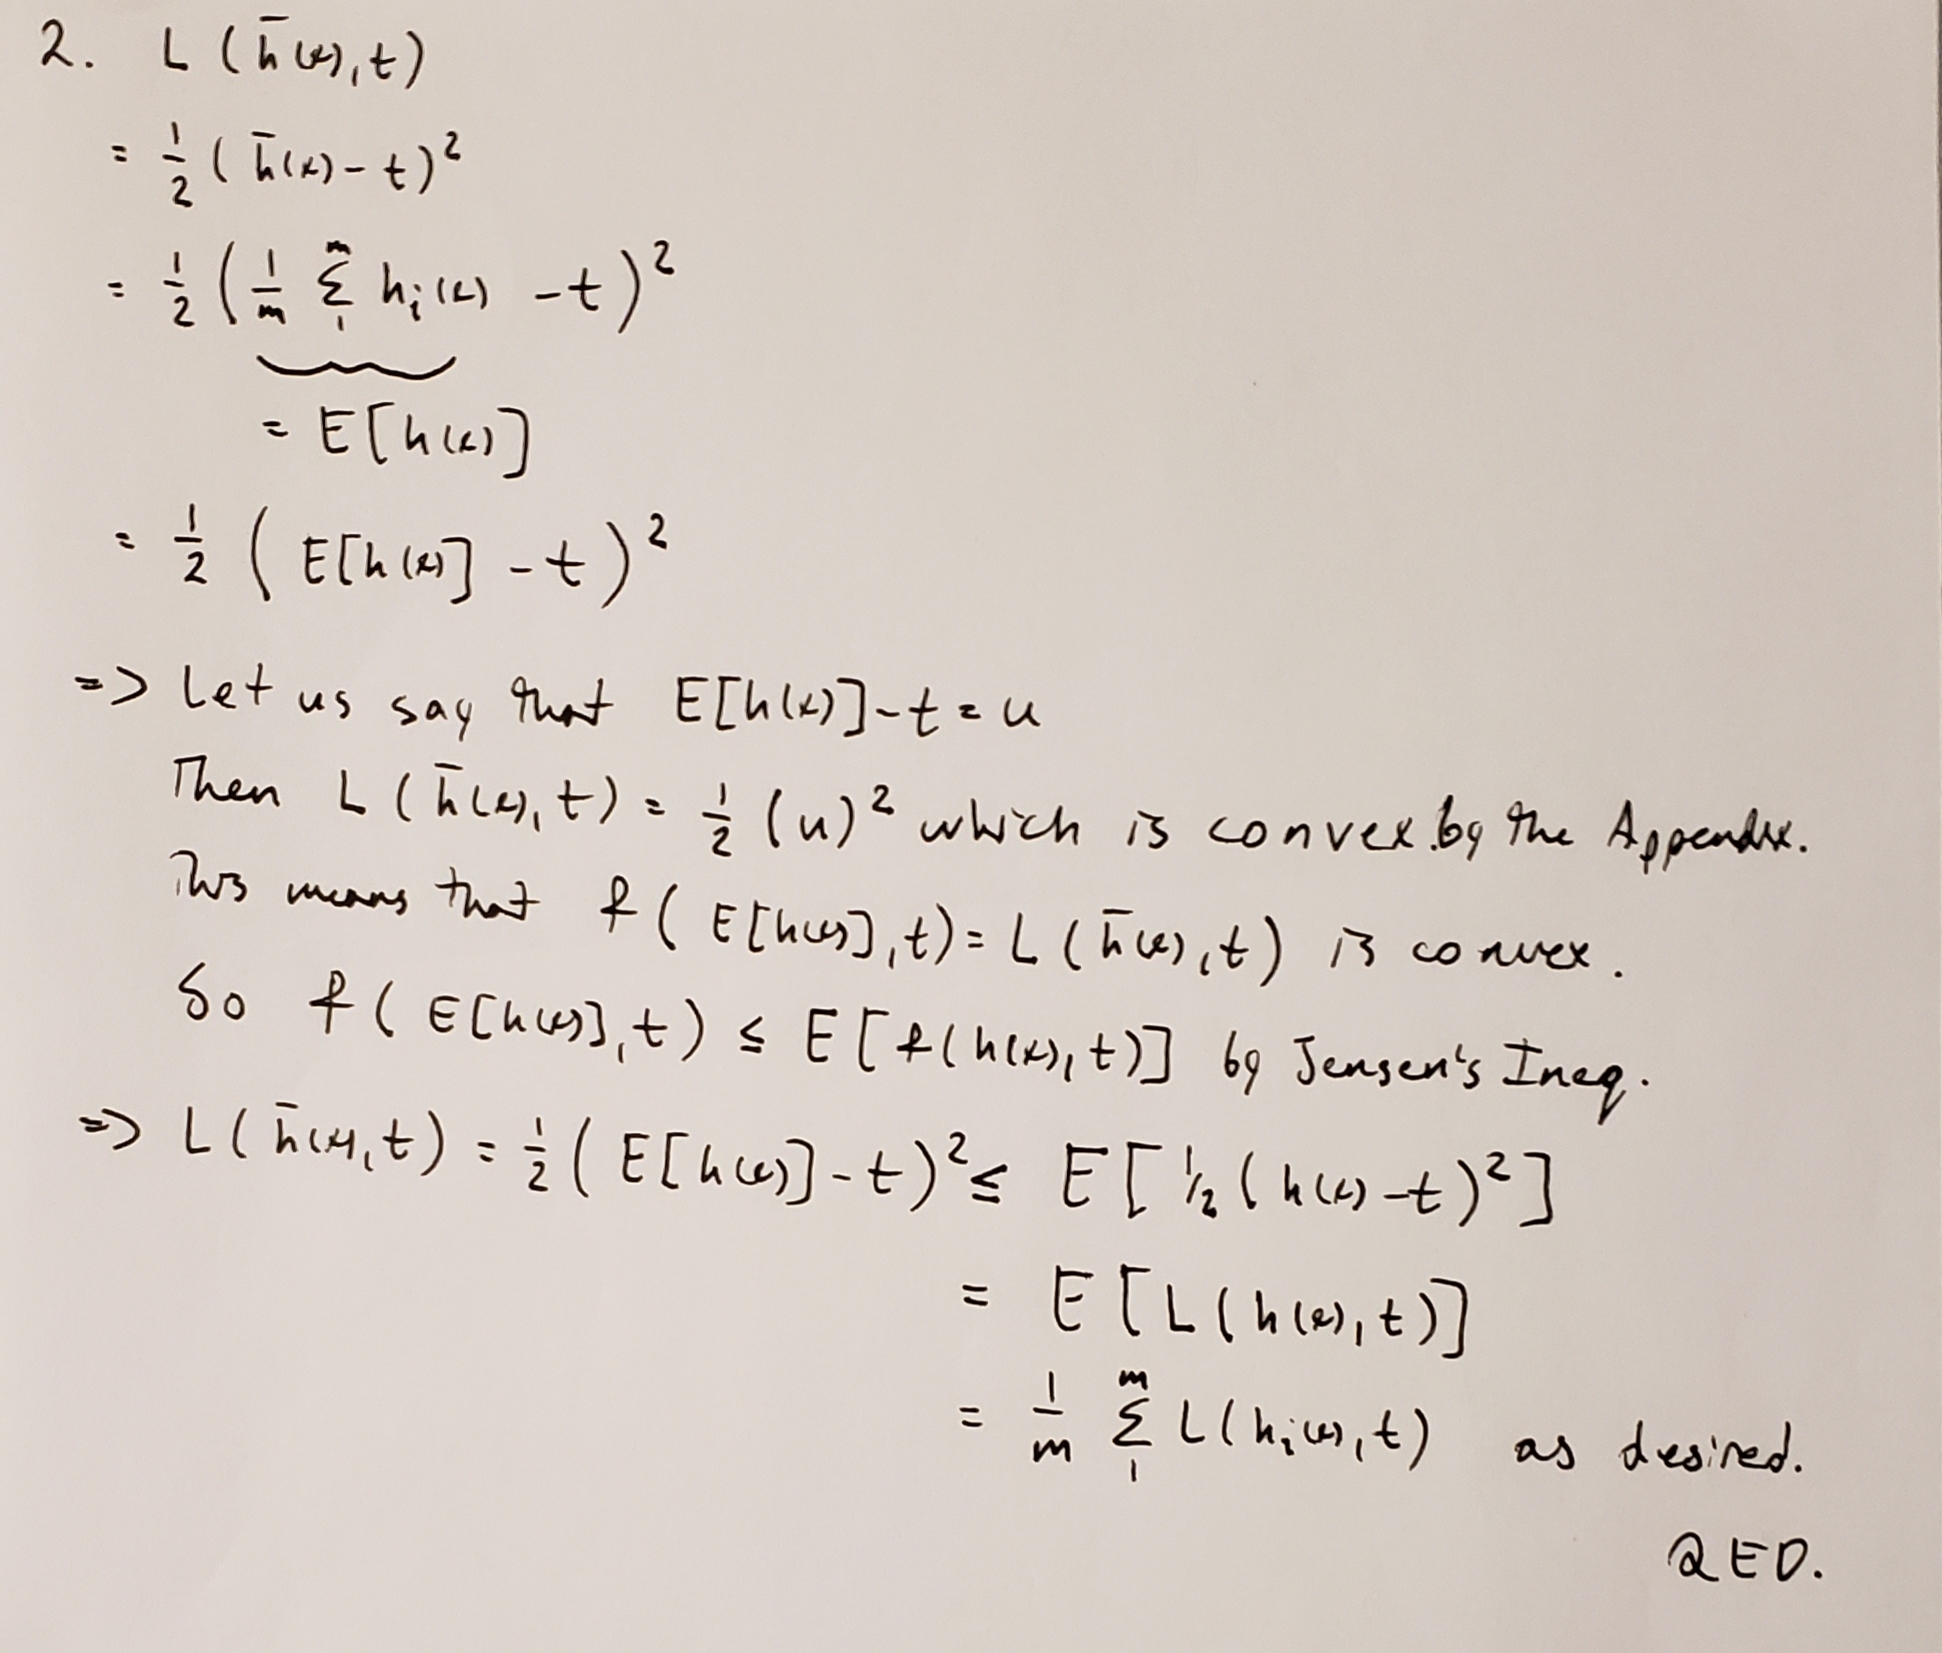 2. L(h̄(x),t)
= 1/2 (h̄(x)-t)²
= 1/2 (1/m Σ₁ᵐ hᵢ(x) -t)²
= E[h(x)]
= 1/2 (E[h(x)] -t)²
=> Let us say that E[h(x)]-t=u
Then L(h̄(x),t) = 1/2 (u)² which is convex by the Appendix.
This means that f(E[h(x)],t) = L(h̄(x),t) is convex.
So f(E[h(x)],t) ≤ E[f(h(x),t)] by Jensen's Ineq.
=> L(h̄(x),t) = 1/2 (E[h(x)]-t)² ≤ E[1/2(h(x)-t)²]
= E[L(h(x),t)]
= 1/m Σ₁ᵐ L(hᵢ(x),t) as desired.
QED.